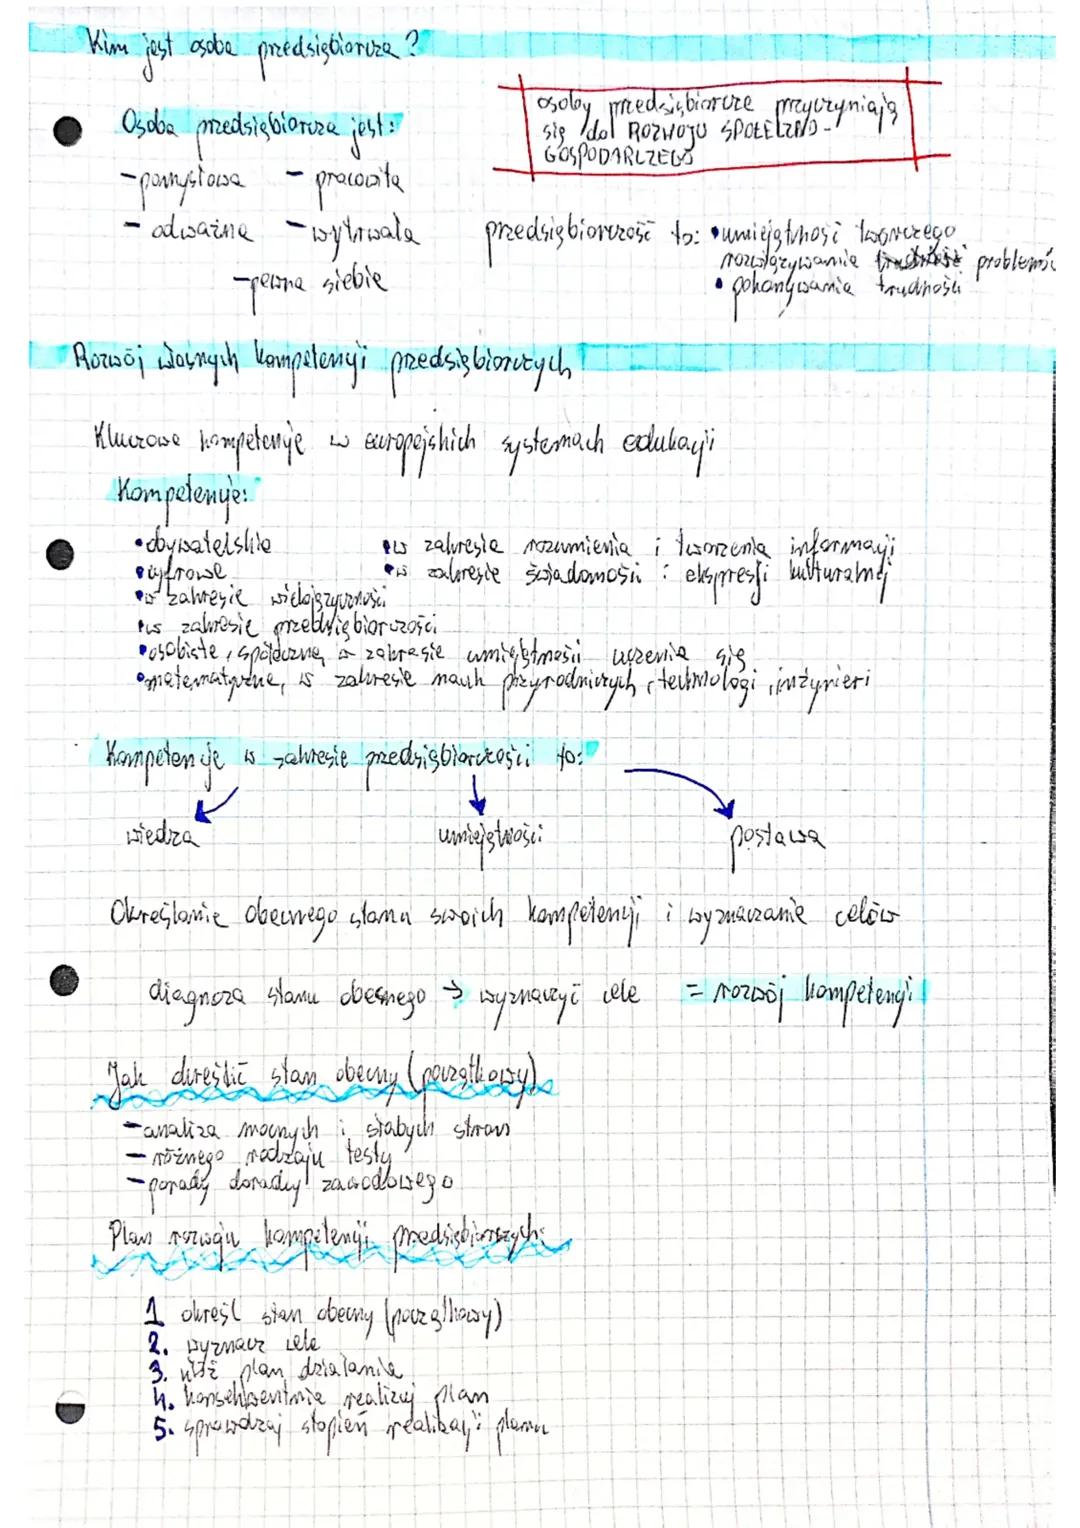 Kim jest osoba przedsiębiorcza?
osoby przedsiębiorcze przyczyniają
się do ROZWOJU SPOŁECZNO-
GOSPODARCZEGO
Osoba przedsiębiorcza jest:
- pomysłowa - pracowita
- odważna - wytrwała
- pewna siebie
przedsiębiorczość to: • umiejętność twórczego
rozwiązywania problemów
• pokonywania trudności
Rozwój własnych kompetencji przedsiębiorczych
Kluczowe kompetencje w europejskich systemach edukacji
Kompetencje:
• obywatelskie
• cyfrowe
• w zakresie wielojęzyczności
• w zakresie przedsiębiorczości
• w zakresie rozumienia i tworzenia informacji
• w zakresie świadomości i ekspresji kulturalnej
• osobiste, społeczne, w zakresie umiejętności uczenia się
• matematyczne, w zakresie nauk przyrodniczych, technologi, inżynieri
Kompetencje w zakresie przedsiębiorczości to:
wiedza umiejętności postawa
Określanie obecnego stanu swoich kompetencji i wyznaczanie celów
diagnoza stanu obecnego → wyznaczyć cele = rozwój kompetencji
Jak określić stan obecny (początkowy)
- analiza mocnych i słabych stron
- różnego rodzaju testy
- porady doradcy zawodowego
Plan rozwoju kompetencji przedsiębiorczych:
1 określ stan obecny (początkowy)
2. wyznacz cele
3. ułóż plan działania
4. konsekwentnie realizuj plan
5. sprawdzaj stopień realizacji planu